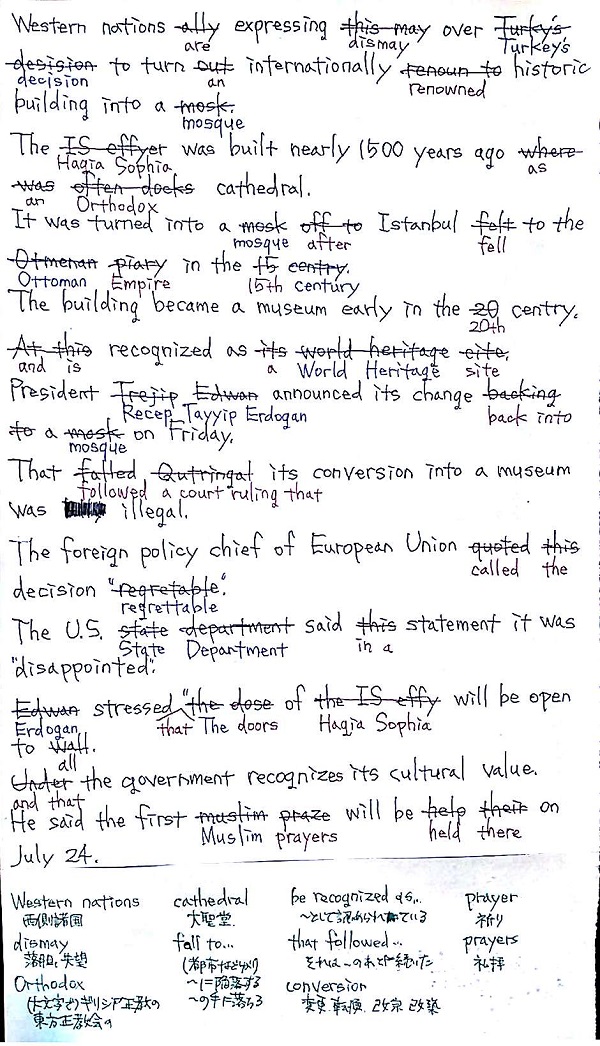 Western nations ally expressing this may over Turky's
are dismay Turkey's
desision to turn out internationally renoun to historic
decision an renowned
building into a mosk.
mosque
The IS effyer was built nearly 1500 years ago where
Hagia Sophia as
was often docks cathedral.
an Orthodox
It was turned into a mosk off to Istanbul felt to the
mosque after fell
Otmenan piary in the 15 centry.
Ottoman Empire 15th century
The building became a museum early in the 20 centry.
20th
At this recognized as its world heritage cite.
and is a World Heritage site
President Trejip Edwan announced its change backing
Recep Tayyip Erdogan back into
to a mosk on Friday.
mosque
That falled Qutringal its conversion into a museum
followed a court ruling that
was illegal.
The foreign policy chief of European Union quoted this
called the
decision "regretable".
regrettable
The U.S. state department said this statement it was
State Department in a
"disappointed".
Edwan stressed "the dose of the IS effy will be open
Erdogan that The doors Hagia Sophia
to wall.
all
Under the government recognizes its cultural value.
and that
He said the first muslim praze will be help their on
Muslim prayers held there
July 24.
Western nations cathedral be recognized as... prayer
西側諸国 大聖堂. ～として認められている 祈り
dismay fall to... that followed... prayers
落胆, 失望 (都市などが) それは～のあとに続いた 礼拝
Orthodox ～に陥落する conversion
(大文字で)ギリシア正教の ～の手に落ちる 変更, 転換, 改宗, 改築
東方正教会の